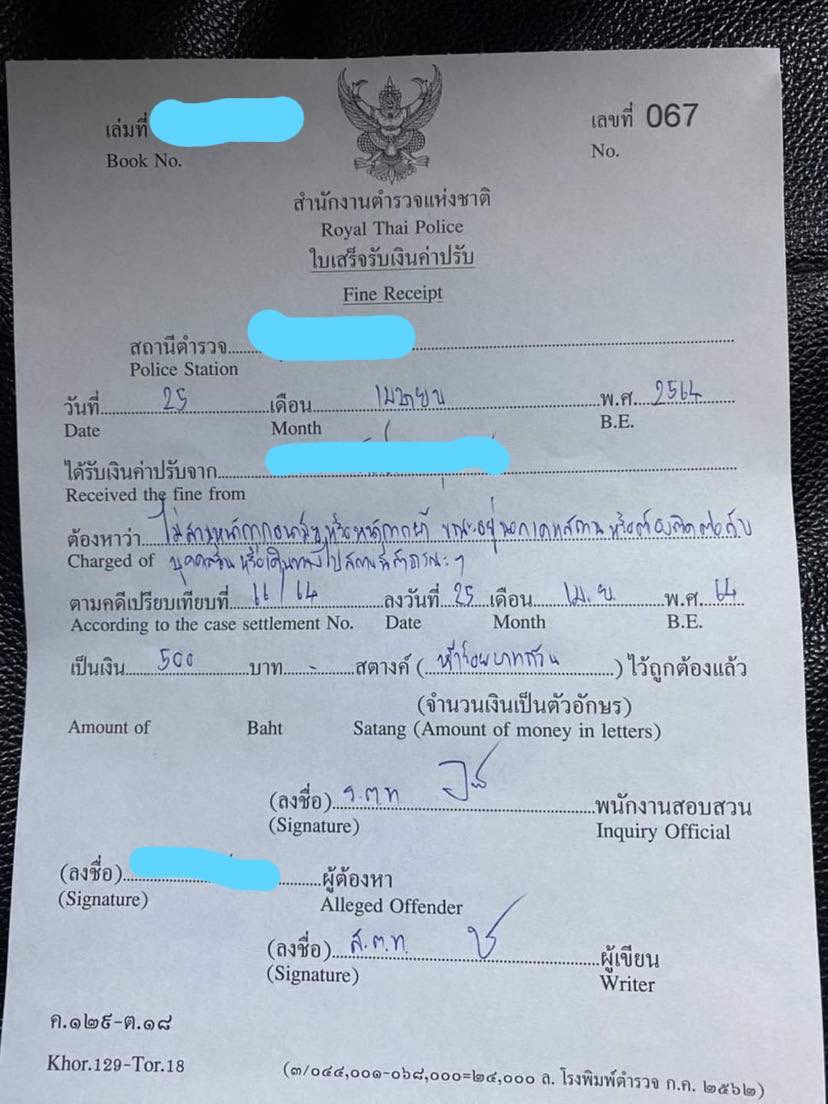 เล่มที่ เลขที่ 067
Book No. No.
สำนักงานตำรวจแห่งชาติ
Royal Thai Police
ใบเสร็จรับเงินค่าปรับ
Fine Receipt
สถานีตำรวจ
Police Station
วันที่ 25 เดือน เมษายน พ.ศ. 2564
Date Month B.E.
ได้รับเงินค่าปรับจาก
Received the fine from
ต้องหาว่า ไม่สวมหน้ากากอนามัยหรือหน้ากากผ้า ขณะอยู่นอกเคหสถานหรือต้องติดต่อกับ
Charged of บุคคลอื่น หรือเดินทางไปสถานที่สาธารณะ ๆ
ตามคดีเปรียบเทียบที่ 11/64 ลงวันที่ 25 เดือน เม.ย. พ.ศ. 64
According to the case settlement No. Date Month B.E.
เป็นเงิน 500 บาท - สตางค์ (ห้าร้อยบาทถ้วน) ไว้ถูกต้องแล้ว
(จำนวนเงินเป็นตัวอักษร)
Amount of Baht Satang (Amount of money in letters)
(ลงชื่อ) ร.ต.ท พนักงานสอบสวน
(Signature) Inquiry Official
(ลงชื่อ) ผู้ต้องหา
(Signature) Alleged Offender
(ลงชื่อ) ส.ต.ท. ผู้เขียน
(Signature) Writer
ค.๑๒๙-ต.๑๘
Khor.129-Tor.18 (๓/๐๔๔,๐๐๑-๐๖๘,๐๐๐=๒๔,๐๐๐ ล. โรงพิมพ์ตำรวจ ก.ค. ๒๕๖๒)